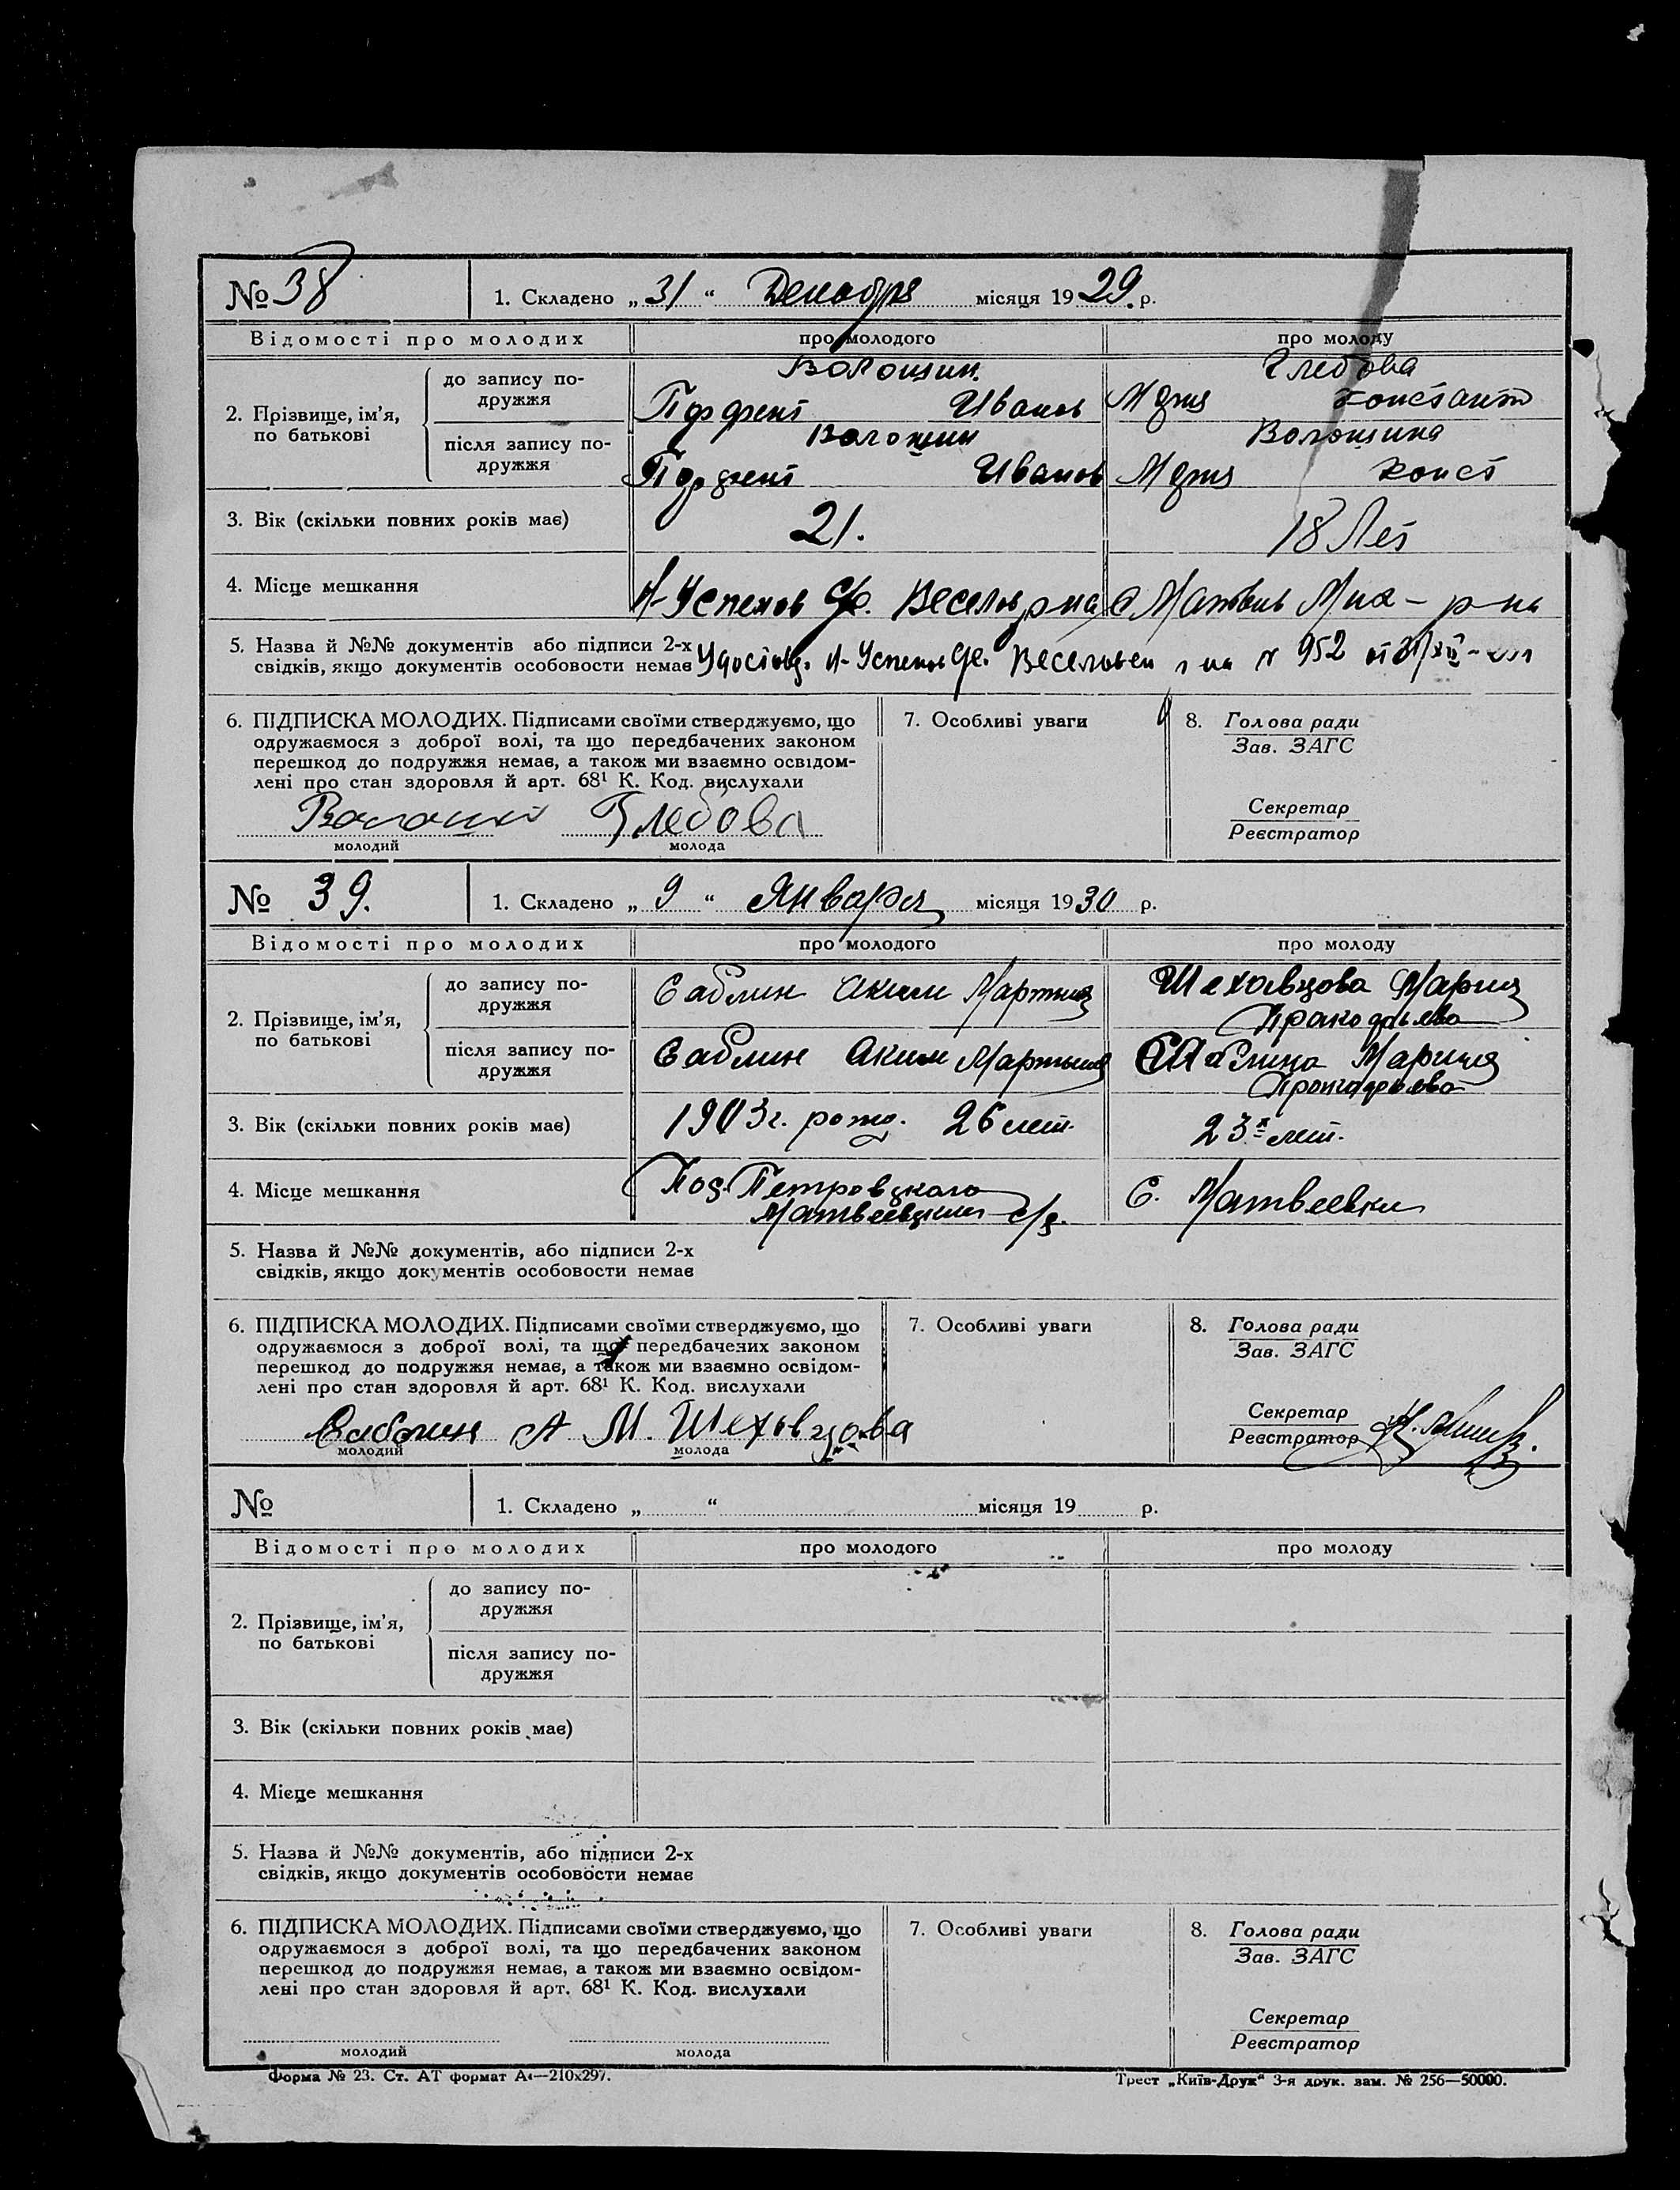 № 38
1. Складено „31“ Декабря місяця 1929. р.
Відомості про молодих про молодого про молоду
2. Прізвище, ім’я, по батькові
до запису по-
дружжя
Волошин. Глебова
Парфент Иванов Мария Констант
після запису по-
дружжя
Волошин Волошина
Парфент Иванов Мария Конст
3. Вік (скільки повних років має) 21. 18 Лет
4. Місце мешкання Н-Успенов С/с. Веселов р-на С Матвив Мих - р-на
5. Назва й №№ документів або підписи 2-х
свідків, якщо документів особовости немає Удостов. Н-Успенов С/с. Веселовск р-на № 952 от 31/XII-
6. ПІДПИСКА МОЛОДИХ. Підписами своїми стверджуємо, що
одружаємося з доброї волі, та що передбачених законом
перешкод до подружжя немає, а також ми взаємно освідом-
лені про стан здоровля й арт. 68¹ К. Код. вислухали
Волошин Глебова
молодий молода
7. Особливі уваги
8. Голова ради
Зав. ЗАГС
Секретар
Реєстратор
№ 39.
1. Складено „9“ Января місяця 1930 р.
Відомості про молодих про молодого про молоду
2. Прізвище, ім’я,
по батькові
до запису по-
дружжя
Саблин Аким Мартын Шеховцова Мария
Прокофьева
після запису по-
дружжя
Саблин Аким Мартын Саблина Мария
Прокофьева
3. Вік (скільки повних років має) 1903г. рожд. 26 лет. 23х лет.
4. Місце мешкання Пос. Петровского С. Матвеевки
Матвеевский с/с.
5. Назва й №№ документів, або підписи 2-х
свідків, якщо документів особовости немає
6. ПІДПИСКА МОЛОДИХ. Підписами своїми стверджуємо, що
одружаємося з доброї волі, та що передбачених законом
перешкод до подружжя немає, а також ми взаємно освідом-
лені про стан здоровля й арт. 68¹ К. Код. вислухали
Саблин А М. Шеховцова
молодий молода
7. Особливі уваги
8. Голова ради
Зав. ЗАГС
Секретар
Реєстратор
№
1. Складено „ “ місяця 19 р.
Відомості про молодих про молодого про молоду
2. Прізвище, ім’я,
по батькові
до запису по-
дружжя
після запису по-
дружжя
3. Вік (скільки повних років має)
4. Місце мешкання
5. Назва й №№ документів, або підписи 2-х
свідків, якщо документів особовости немає
6. ПІДПИСКА МОЛОДИХ. Підписами своїми стверджуємо, що
одружаємося з доброї волі, та що передбачених законом
перешкод до подружжя немає, а також ми взаємно освідом-
лені про стан здоровля й арт. 68¹ К. Код. вислухали
молодий молода
7. Особливі уваги
8. Голова ради
Зав. ЗАГС
Секретар
Реєстратор
Форма № 23. Ст. АТ формат А4—210х297.
Трест „Київ-Друк“ 3-я друк. зам. № 256—50000.